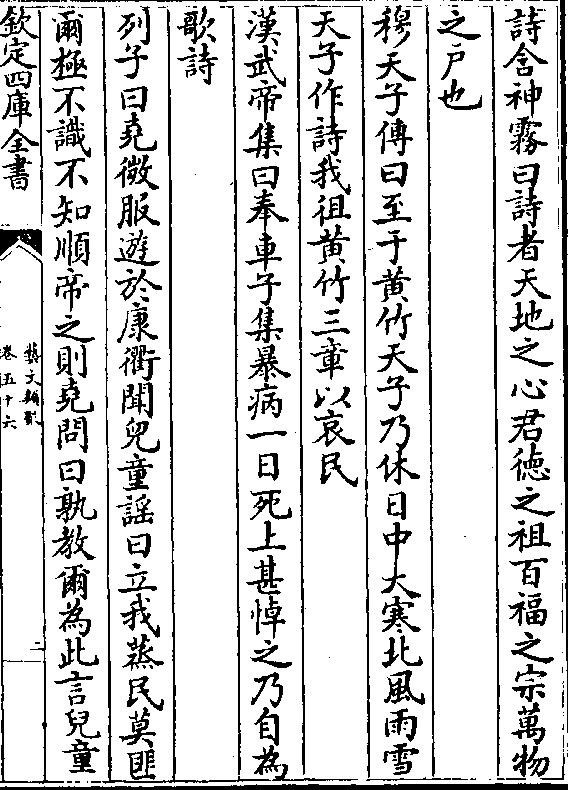 詩含神霧曰詩者天地之心君徳之祖百福之宗萬物
之戸也
穆天子傳曰至于黄竹天子乃休日中大寒北風雨雪
天子作詩我祖黄竹三章以哀民
漢武帝集曰奉車子集暴病一日死上甚悼之乃自為
歌詩
列子曰堯微服遊於康衢聞兒童謡曰立我蒸民莫匪
爾極不識不知順帝之則堯問曰孰教爾為此言兒童
欽定四庫全書
藝文類聚
卷五十六
二